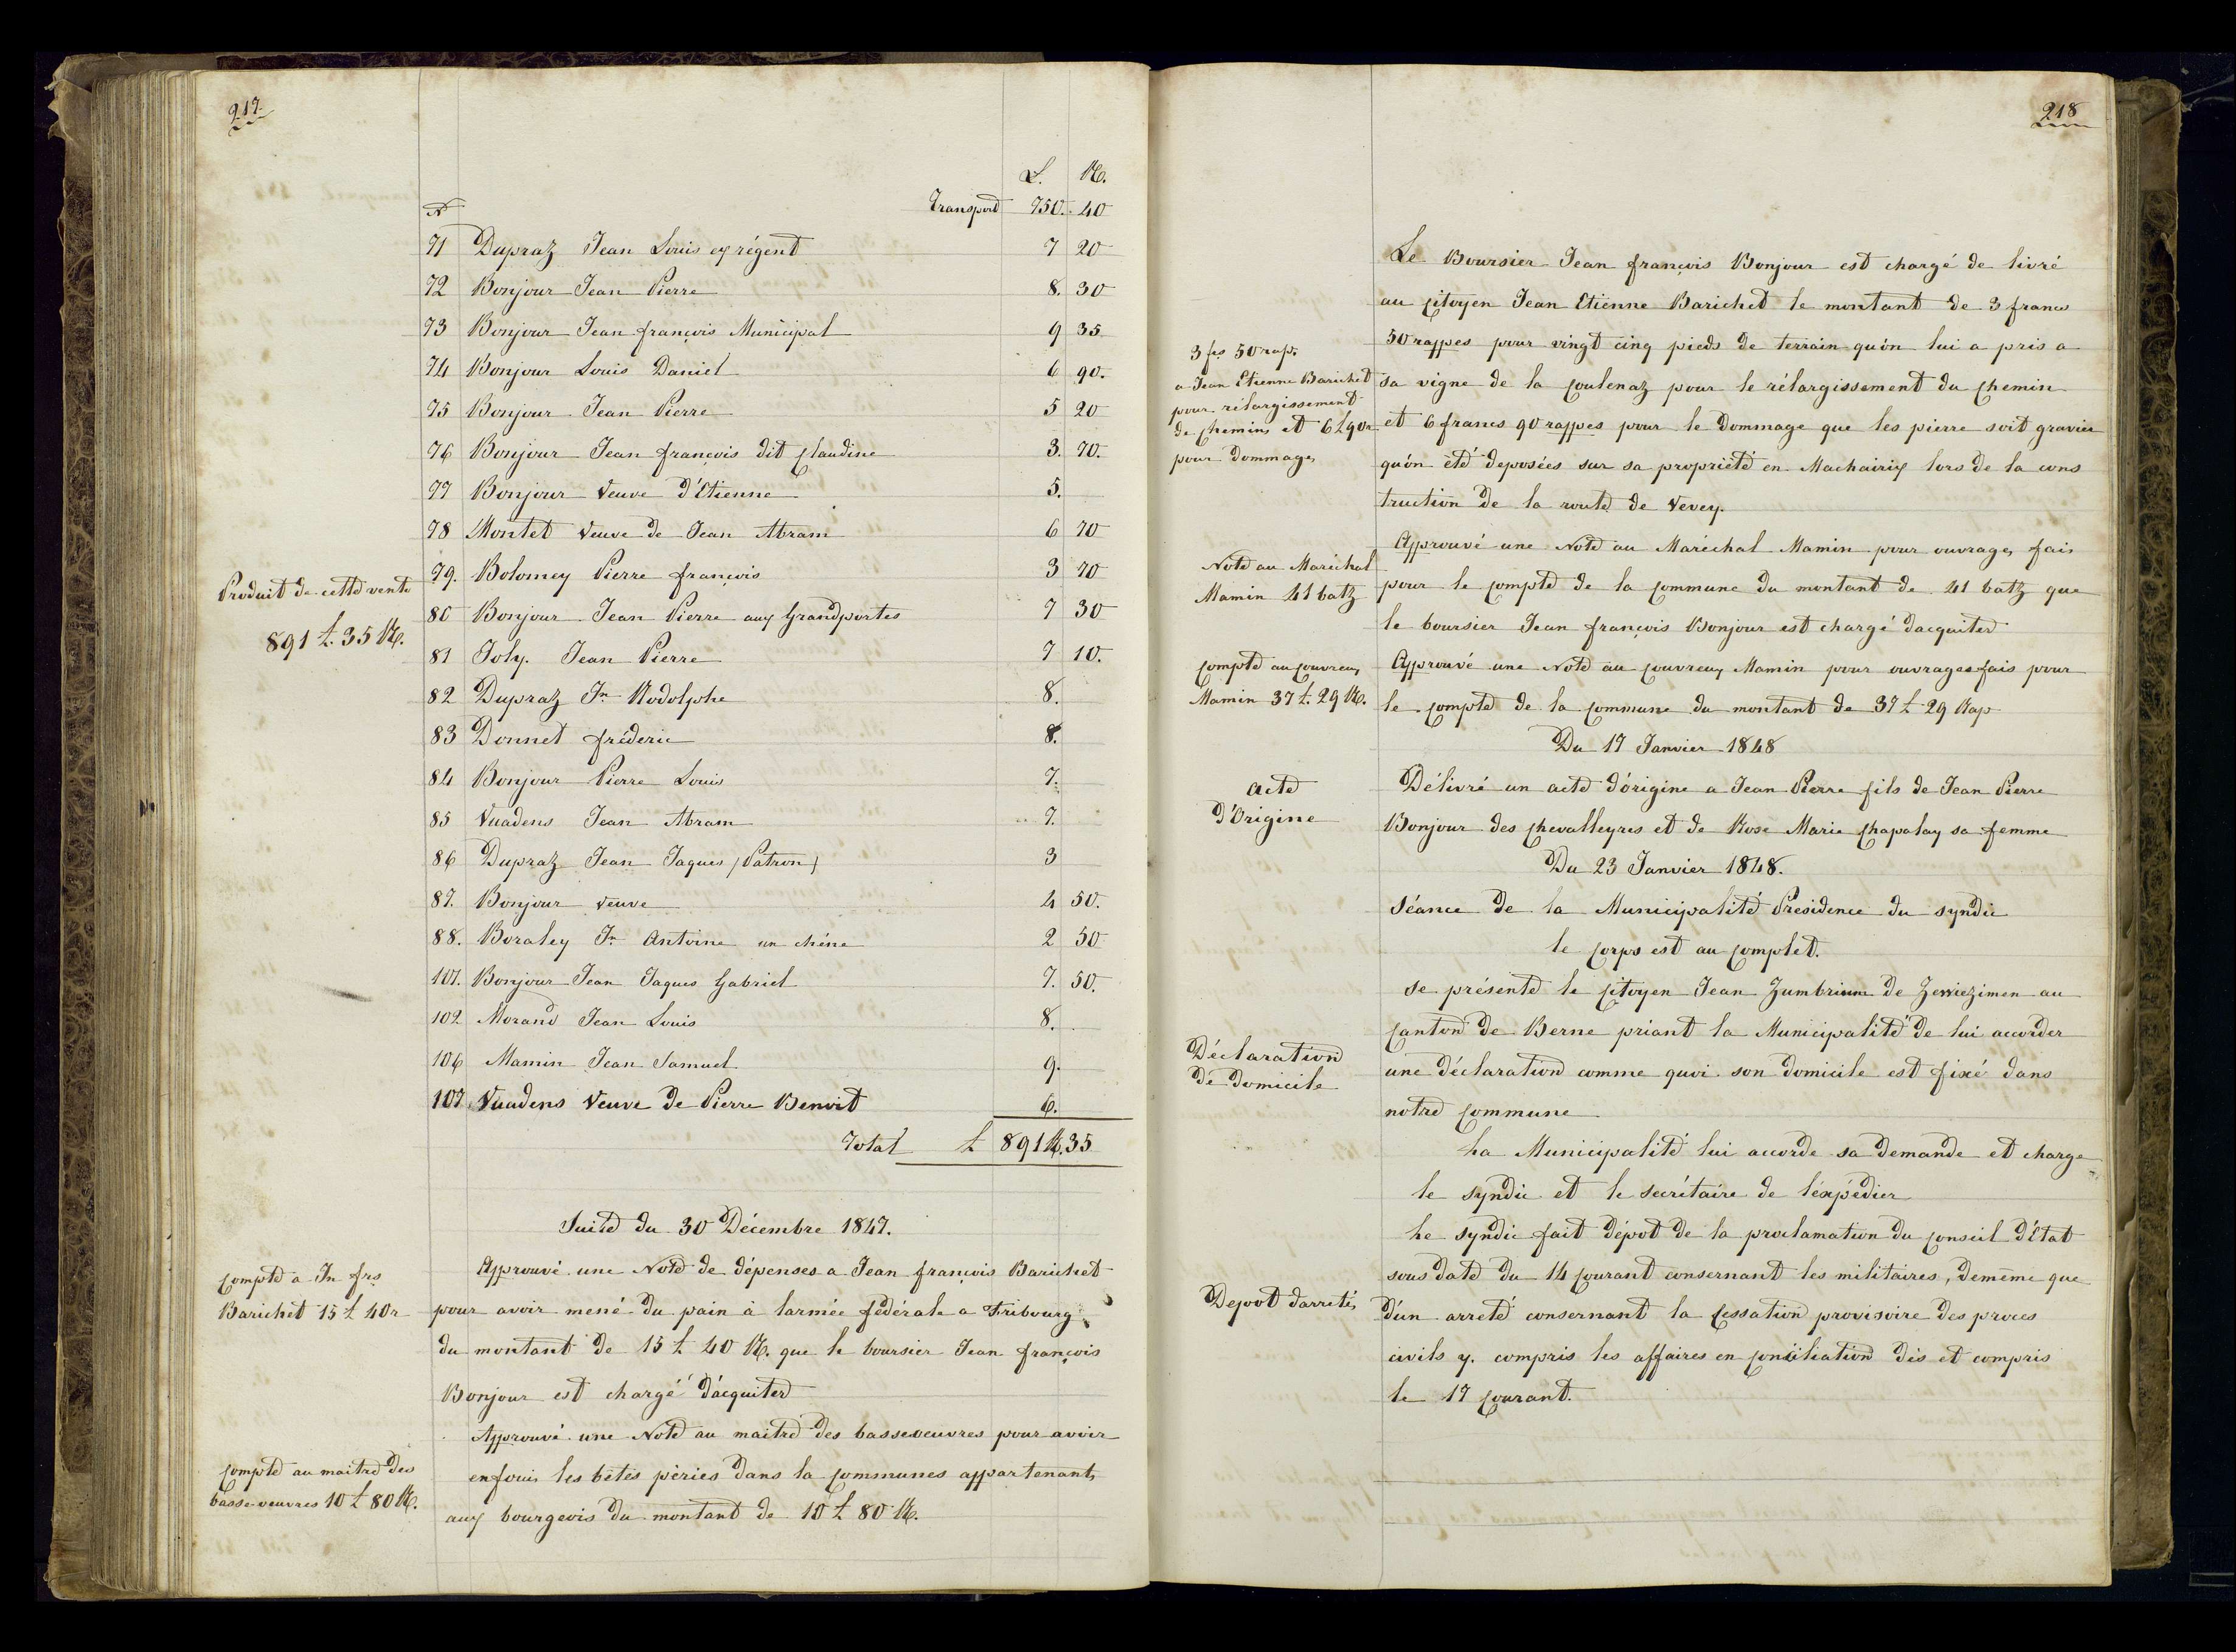 217.
L. R.
N Transport 750. 40
71 Dupraz Jean Louis ex régent 7 20
72 Bonjour Jean Pierre 8. 30
73 Bonjour Jean françois Municipal 9 35
74 Bonjour Louis Daniel 6 90.
75 Bonjour Jean Pierre 5 20
76 Bonjour Jean françois dit Claudine 3. 70.
77 Bonjour Veuve d'Etienne 5.
78 Montet Veuve de Jean Abram 6 70
79. Bolomey Pierre françois 3 70
80 Bonjour Jean Pierre aux Grandportes 7 30
81 Joly. Jean Pierre 7 10.
82 Dupraz Jn Rodolphe 8.
83 Donnet fréderic 8.
84 Bonjour Pierre Louis 7.
85 Vuadens Jean Abram 7.
86 Dupraz Jean Jaques (Patron) 3
87. Bonjour veuve 4 50.
88. Boraley Jn Antoine un chéne 2 50
101. Bonjour Jean Jaques Gabriel 7. 50.
102 Morand Jean Louis 8.
106 Mamin Jean Samuel 9.
107 Vuadens Veuve de Pierre Benoit 6.
Total £ 891 R. 35
Produit de cette vente
891 £. 35 R.
Suite du 30 Décembre 1847.
compte a Jn frs
Barichet 15 £ 40 r
Approuvé une Note de dépenses a Jean françois Barichet
pour avoir mené du pain à larmée fédérale a Fribourg
du montant de 15 £ 40 R. que le boursier Jean françois
Bonjour est chargé d'acquiter
compte au maitre des
basse-oeuvres 10 £ 80 R.
Approuvé une Note au maitre des basse-oeuvres pour avoir
enfouis les bêtes péries dans la communes appartenants
aux bourgeois du montant de 10 £ 80 R.
218
3 frs 50 rap.
a Jean Etienne Barichet
pour rélargissement
de chemins et 6 £ 90 r
pour dommages
Le Boursier Jean françois Bonjour est chargé de livré
au citoyen Jean Etienne Barichet le montant de 3 francs
50 rappes pour vingt cinq pieds de terrain qu'on lui a pris a
sa vigne de la Coulenaz pour le rélargissement du chemin
et 6 francs 90 rappes pour le dommage que les pierre soit gravier
qu'on été deposées sur sa propriété en Machairix lors de la cons
truction de la route de Vevey.
Note au Maréchal
Mamin 41 batz
Approuvé une Note au Maréchal Mamin pour ouvrages fais
pour le compte de la commune du montant de 41 batz que
le boursier Jean françois Bonjour est chargé dacquiter
compte au couvreur
Mamin 37 £. 29 R.
Approuvé une Note au couvreur Mamin pour ouvrages fais pour
le compte de la commune du montant de 37 £ 29 Rap
Du 17 Janvier 1848
Acte
d'Origine
Délivré un acte d'origine a Jean Pierre fils de Jean Pierre
Bonjour des Chevalleyres et de Rose Marie Chapalay sa femme
Du 23 Janvier 1848.
Séance de la Municipalité Présidence du syndic
le corps est au complet.
Déclaration
de domicile
se présente le citoyen Jean Zumbrunn de Zewiezimen au
canton de Berne priant la Municipalité de lui accorder
une déclaration comme quoi son domicile est fixé dans
notre commune
La Municipalité lui accorde sa demande et charge
le syndic et le secrétaire de léxpédier
Depot darretés
Le syndic fait dépot de la proclamation du conseil d'Etat
sous date du 14 courant consernant les militaires, demême que
d'un arreté consernant la cessation provisoire des proces
civils y. compris les affaires en conciliation dès et compris
le 17 courant.